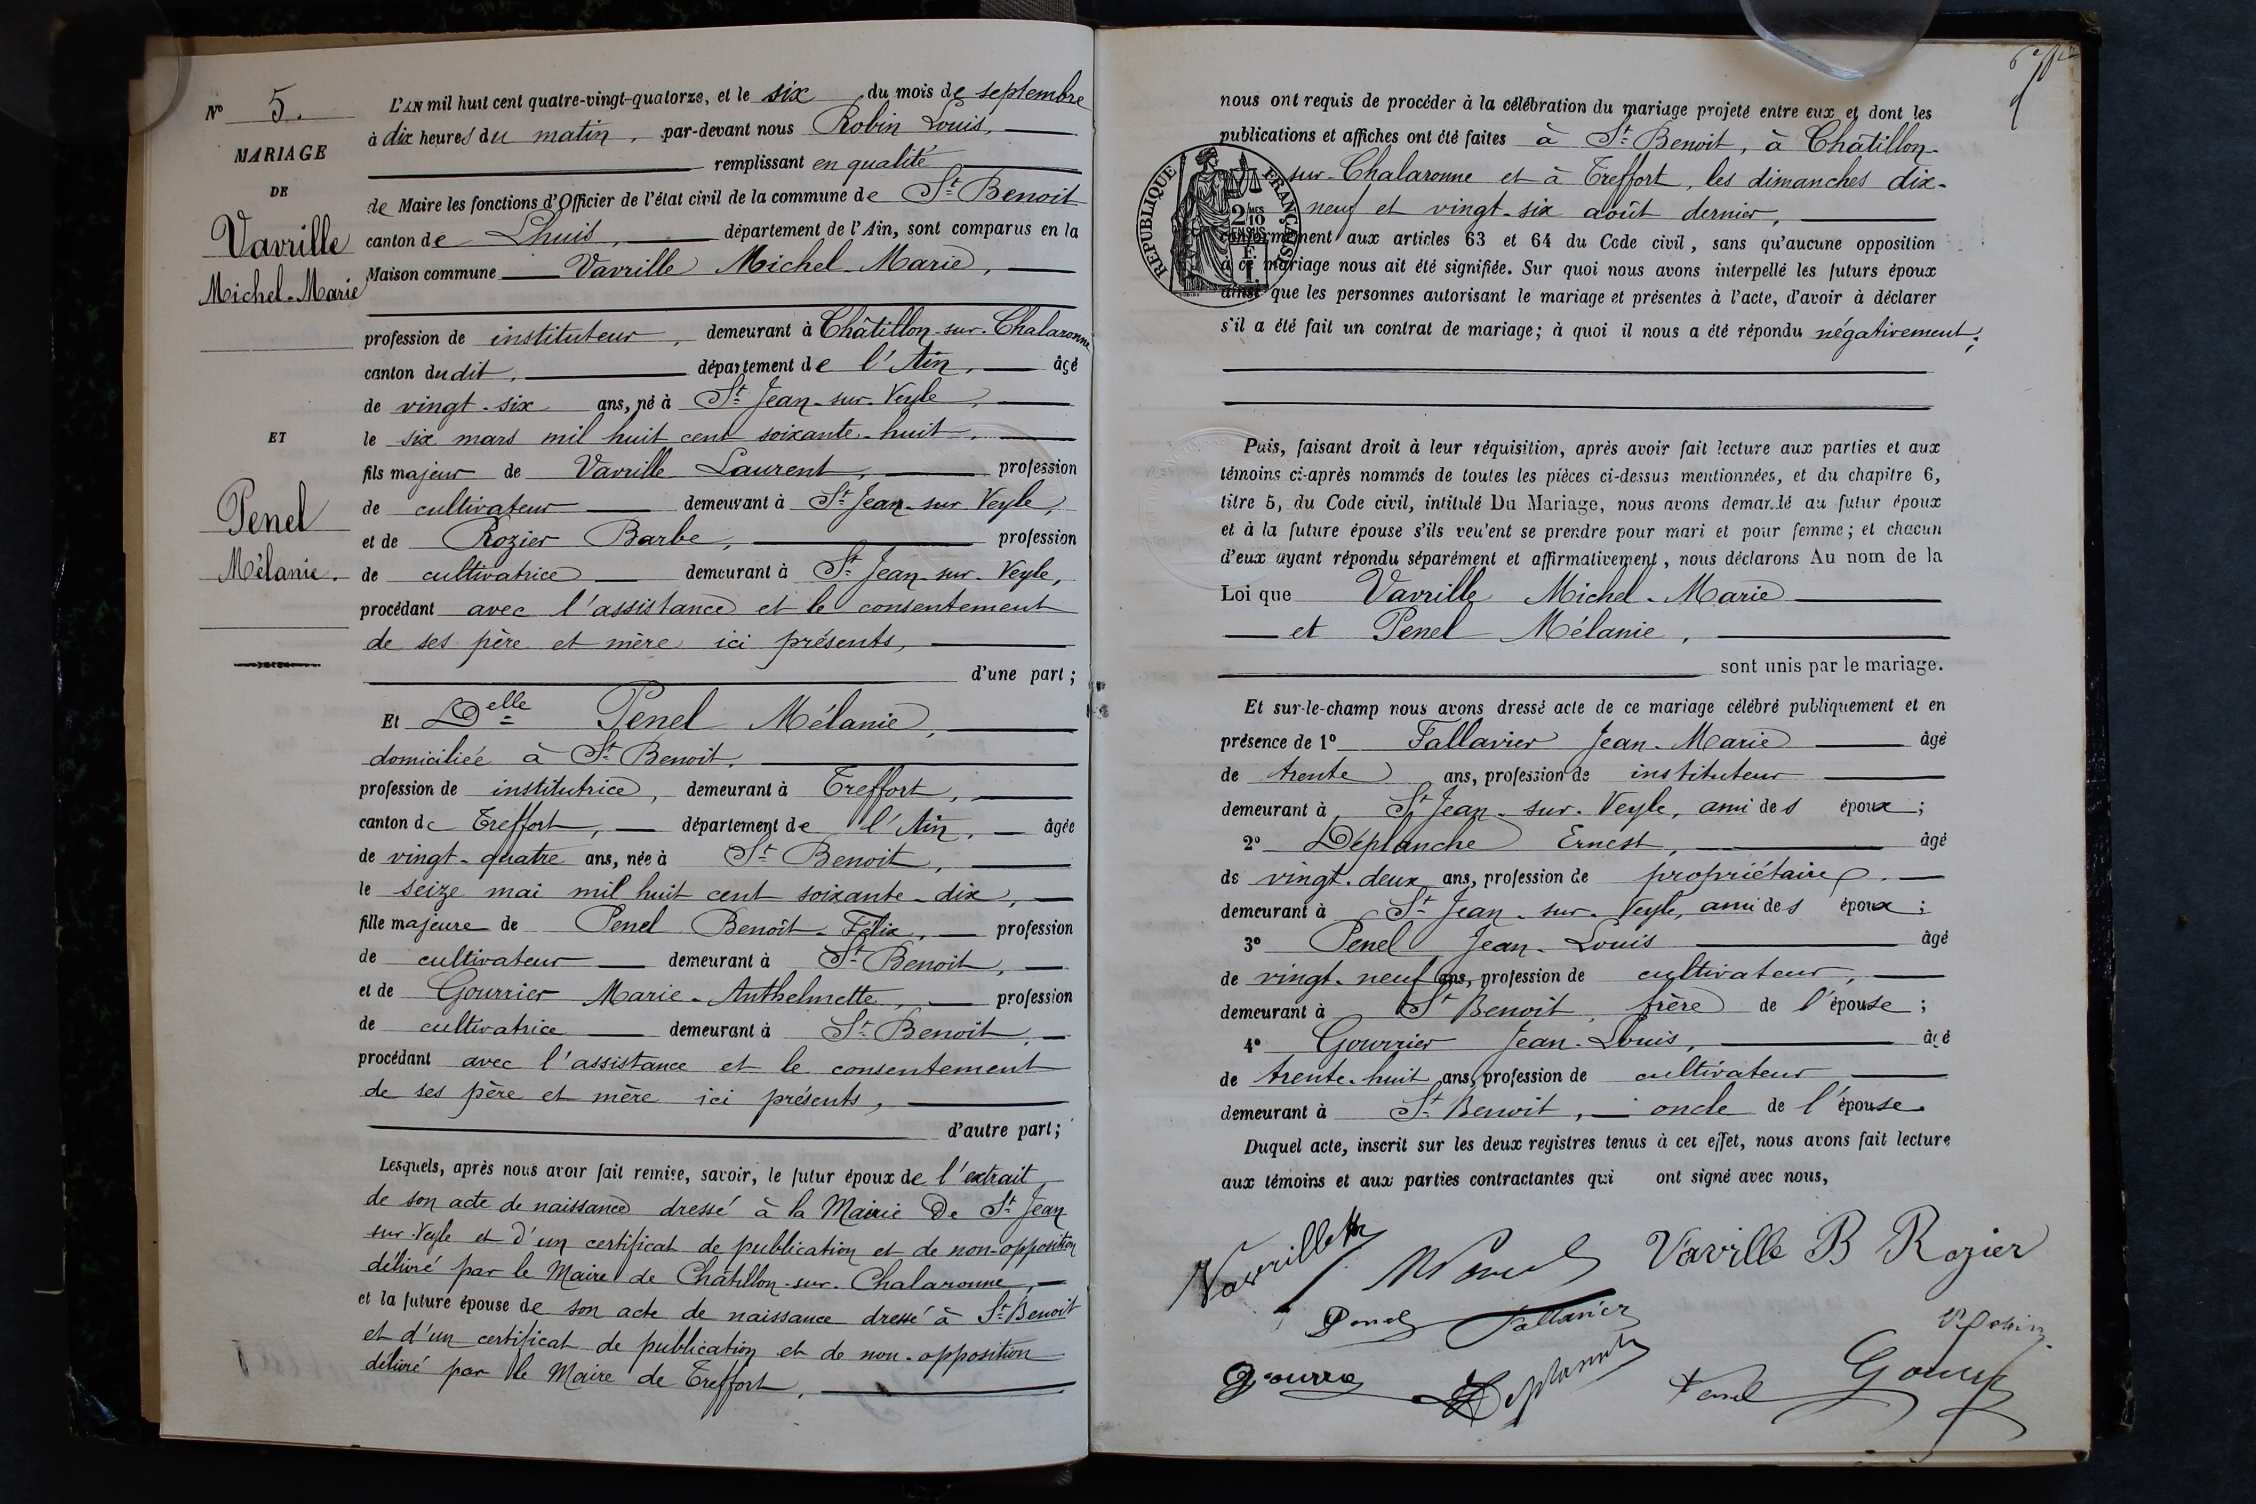 Nº 5.
MARIAGE
DE
Vavrille
Michel-Marie
ET
Penel
Mélanie.
L'AN mil huit cent quatre-vingt-quatorze, et le six du mois de septembre
à dix heures du matin, par-devant nous Robin Louis,
remplissant en qualité
de Maire les fonctions d'Officier de l'état civil de la commune de St Benoit
canton de Lhuis, département de l'Ain, sont comparus en la
Maison commune Vavrille Michel-Marie,
profession de instituteur, demeurant à Châtillon-sur-Chalaronne
canton dudit, département de l'Ain, âgé
de vingt-six ans, né à St Jean-sur-Veyle,
le six mars mil huit cent soixante-huit,
fils majeur de Vavrille Laurent, profession
de cultivateur demeurant à St Jean-sur Veyle,
et de Rozier Barbe, profession
de cultivatrice demeurant à St Jean-sur-Veyle,
procédant avec l'assistance et le consentement
de ses père et mère ici présents,
d'une part;
Et Delle Penel Mélanie,
domiciliée à St Benoit,
profession de institutrice, demeurant à Treffort,
canton de Treffort, département de l'Ain, âgée
de vingt-quatre ans, née à St Benoit,
le seize mai mil huit cent soixante-dix,
fille majeure de Penel Benoît-Félix, profession
de cultivateur demeurant à St Benoit,
et de Gourrier Marie-Anthelmette, profession
de cultivatrice demeurant à St Benoit,
procédant avec l'assistance et le consentement
de ses père et mère ici présents,
d'autre part;
Lesquels, après nous avoir fait remise, savoir, le futur époux de l'extrait
de son acte de naissance dressé à la Mairie De St Jean
sur-Veyle et d'un certificat de publication et de non-opposition
délivré par le Maire de Châtillon-sur-Chalaronne,
et la future épouse de son acte de naissance dressé à St Benoit
et d'un certificat de publication et de non-opposition
délivré par le Maire de Treffort,
nous ont requis de procéder à la célébration du mariage projeté entre eux et dont les
publications et affiches ont été faites à St Benoit, à Châtillon-
sur-Chalaronne et à Treffort, les dimanches dix-
neuf et vingt-six août dernier,
conformément aux articles 63 et 64 du Code civil, sans qu'aucune opposition
à ce mariage nous ait été signifiée. Sur quoi nous avons interpellé les futurs époux
ainsi que les personnes autorisant le mariage et présentes à l'acte, d'avoir à déclarer
s'il a été fait un contrat de mariage; à quoi il nous a été répondu négativement;
RÉPUBLIQUE FRANÇAISE
2/10
1 F.
Puis, faisant droit à leur réquisition, après avoir fait lecture aux parties et aux
témoins ci-après nommés de toutes les pièces ci-dessus mentionnées, et du chapitre 6,
titre 5, du Code civil, intitulé Du Mariage, nous avons demandé au futur époux
et à la future épouse s'ils veulent se prendre pour mari et pour femme; et chacun
d'eux ayant répondu séparément et affirmativement, nous déclarons Au nom de la
Loi que Vavrille Michel-Marie
et Penel Mélanie,
sont unis par le mariage.
Et sur-le-champ nous avons dressé acte de ce mariage célébré publiquement et en
présence de 1º Fallavier Jean-Marie âgé
de trente ans, profession de instituteur
demeurant à St Jean-sur-Veyle, ami des époux;
2º Déplanche Ernest, âgé
de vingt-deux ans, profession de propriétaire,
demeurant à St Jean-sur-Veyle, ami des époux;
3º Penel Jean-Louis âgé
de vingt-neuf ans, profession de cultivateur,
demeurant à St Benoit, frère de l'épouse;
4º Gourrier Jean-Louis, âgé
de trente-huit ans, profession de cultivateur
demeurant à St Benoit, oncle de l'épouse
Duquel acte, inscrit sur les deux registres tenus à cet effet, nous avons fait lecture
aux témoins et aux parties contractantes qui ont signé avec nous,
Vavrille M Penel Vavrille B Rozier
Penel Fallavier Robin
Déplanche Penel